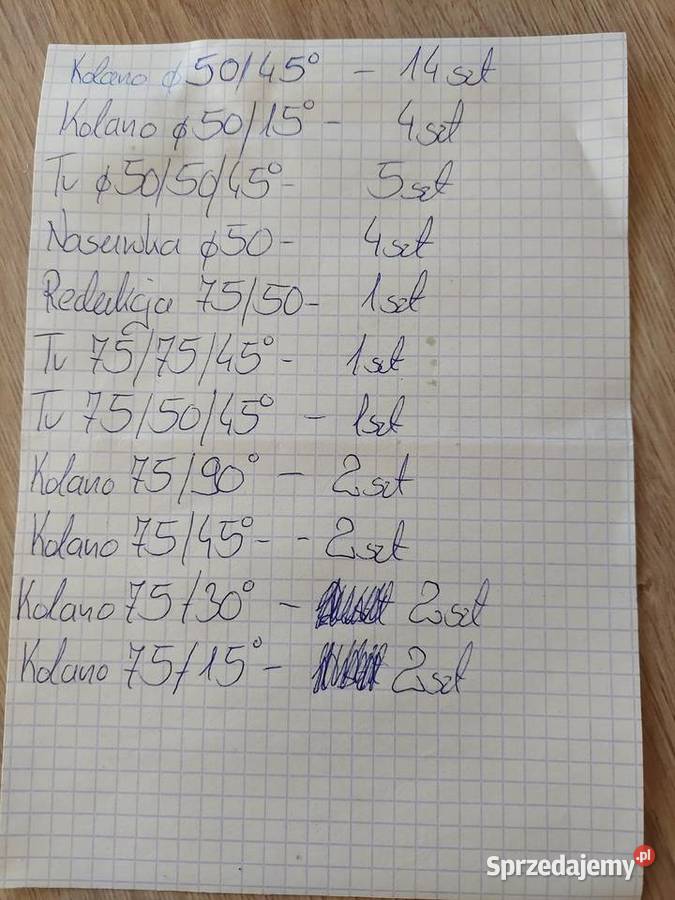 Kolano ϕ50/45° - 14 szt
Kolano ϕ50/15° - 4 szt
Tr ϕ50/50/45° - 5 szt
Nasuwka ϕ50 - 4 szt
Redukcja 75/50 - 1 szt
Tr 75/75/45° - 1 szt
Tr 75/50/45° - 1 szt
Kolano 75/90° - 2 szt
Kolano 75/45° - - 2 szt
Kolano 75/30° - 2 szt
Kolano 75/15° - 2 szt
Sprzedajemy.pl